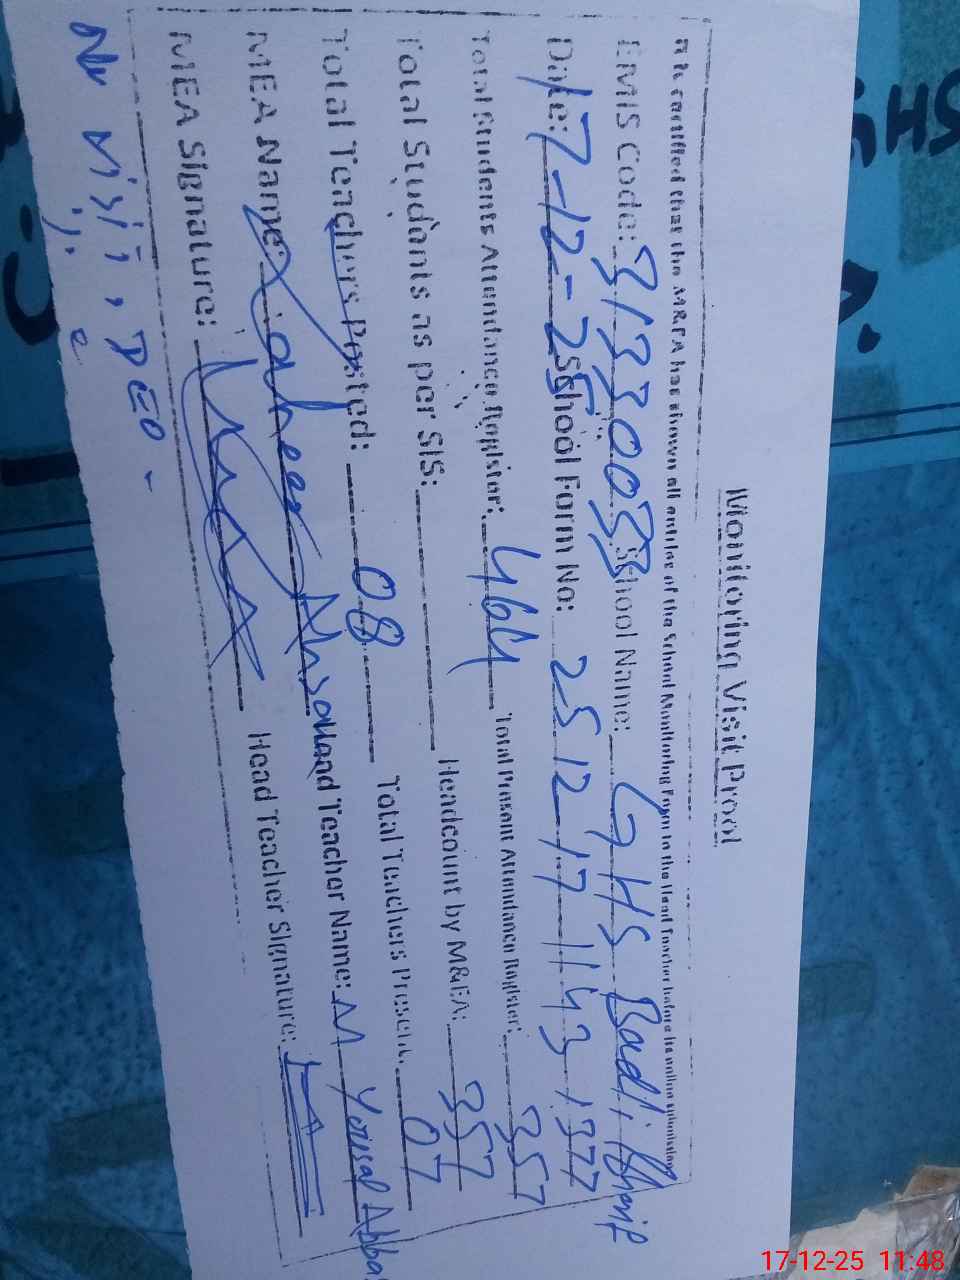 Monitoring Visit Proof
It is certified that the M&EA has shown all entries of the School Monitoring Form to the Head Teacher before its online submission
EMIS Code: 31330033 School Name: GHS Badli Sharif
Date: 17-12-25 School Form No: 25121711431377
Total Students Attendance Register: 464 Total Present Attendance Register: 357
Total Students as per SIS: Headcount by M&EA: 357
Total Teachers Posted: 08 Total Teachers Present: 07
MEA Name: Zaheer Ahsan Head Teacher Name: M Yousaf Abbas
MEA Signature: Head Teacher Signature:
No visit, DEO -
17-12-25 11:48